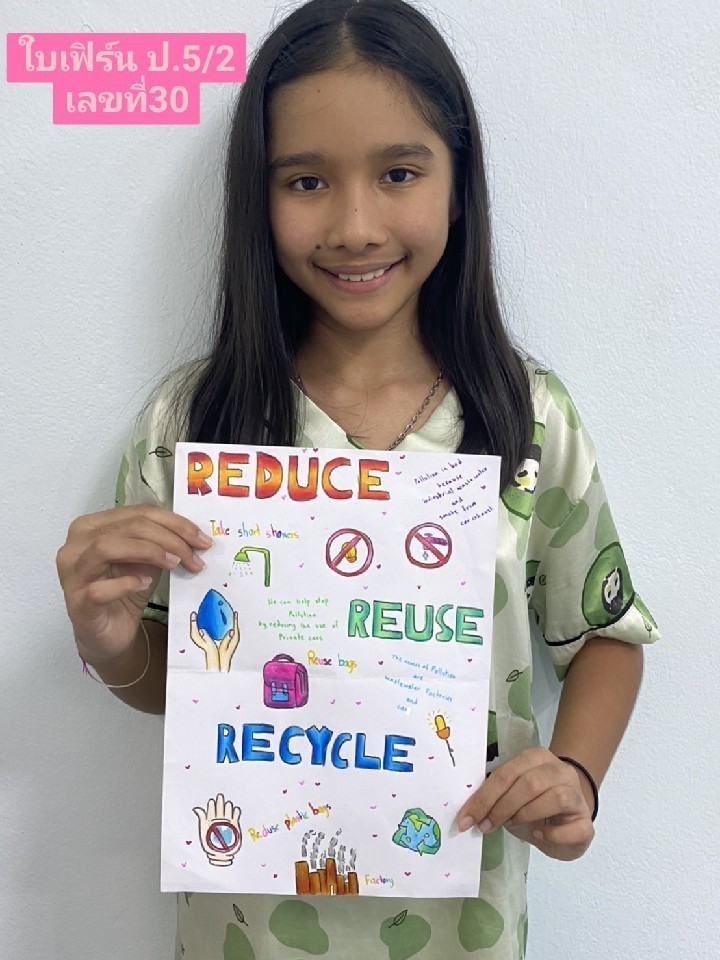 ใบเฟิร์น ป.5/2
เลขที่30
REDUCE
Pollution is bad
because
industrial waste water
and
smoke from
car exhaust
Take short showers
We can help stop
Pollution
by reducing the use of
Private cars
REUSE
Reuse bags
The causes of Pollution
are
wastewater factories
and
RECYCLE
Reduse plastic bags
Factory